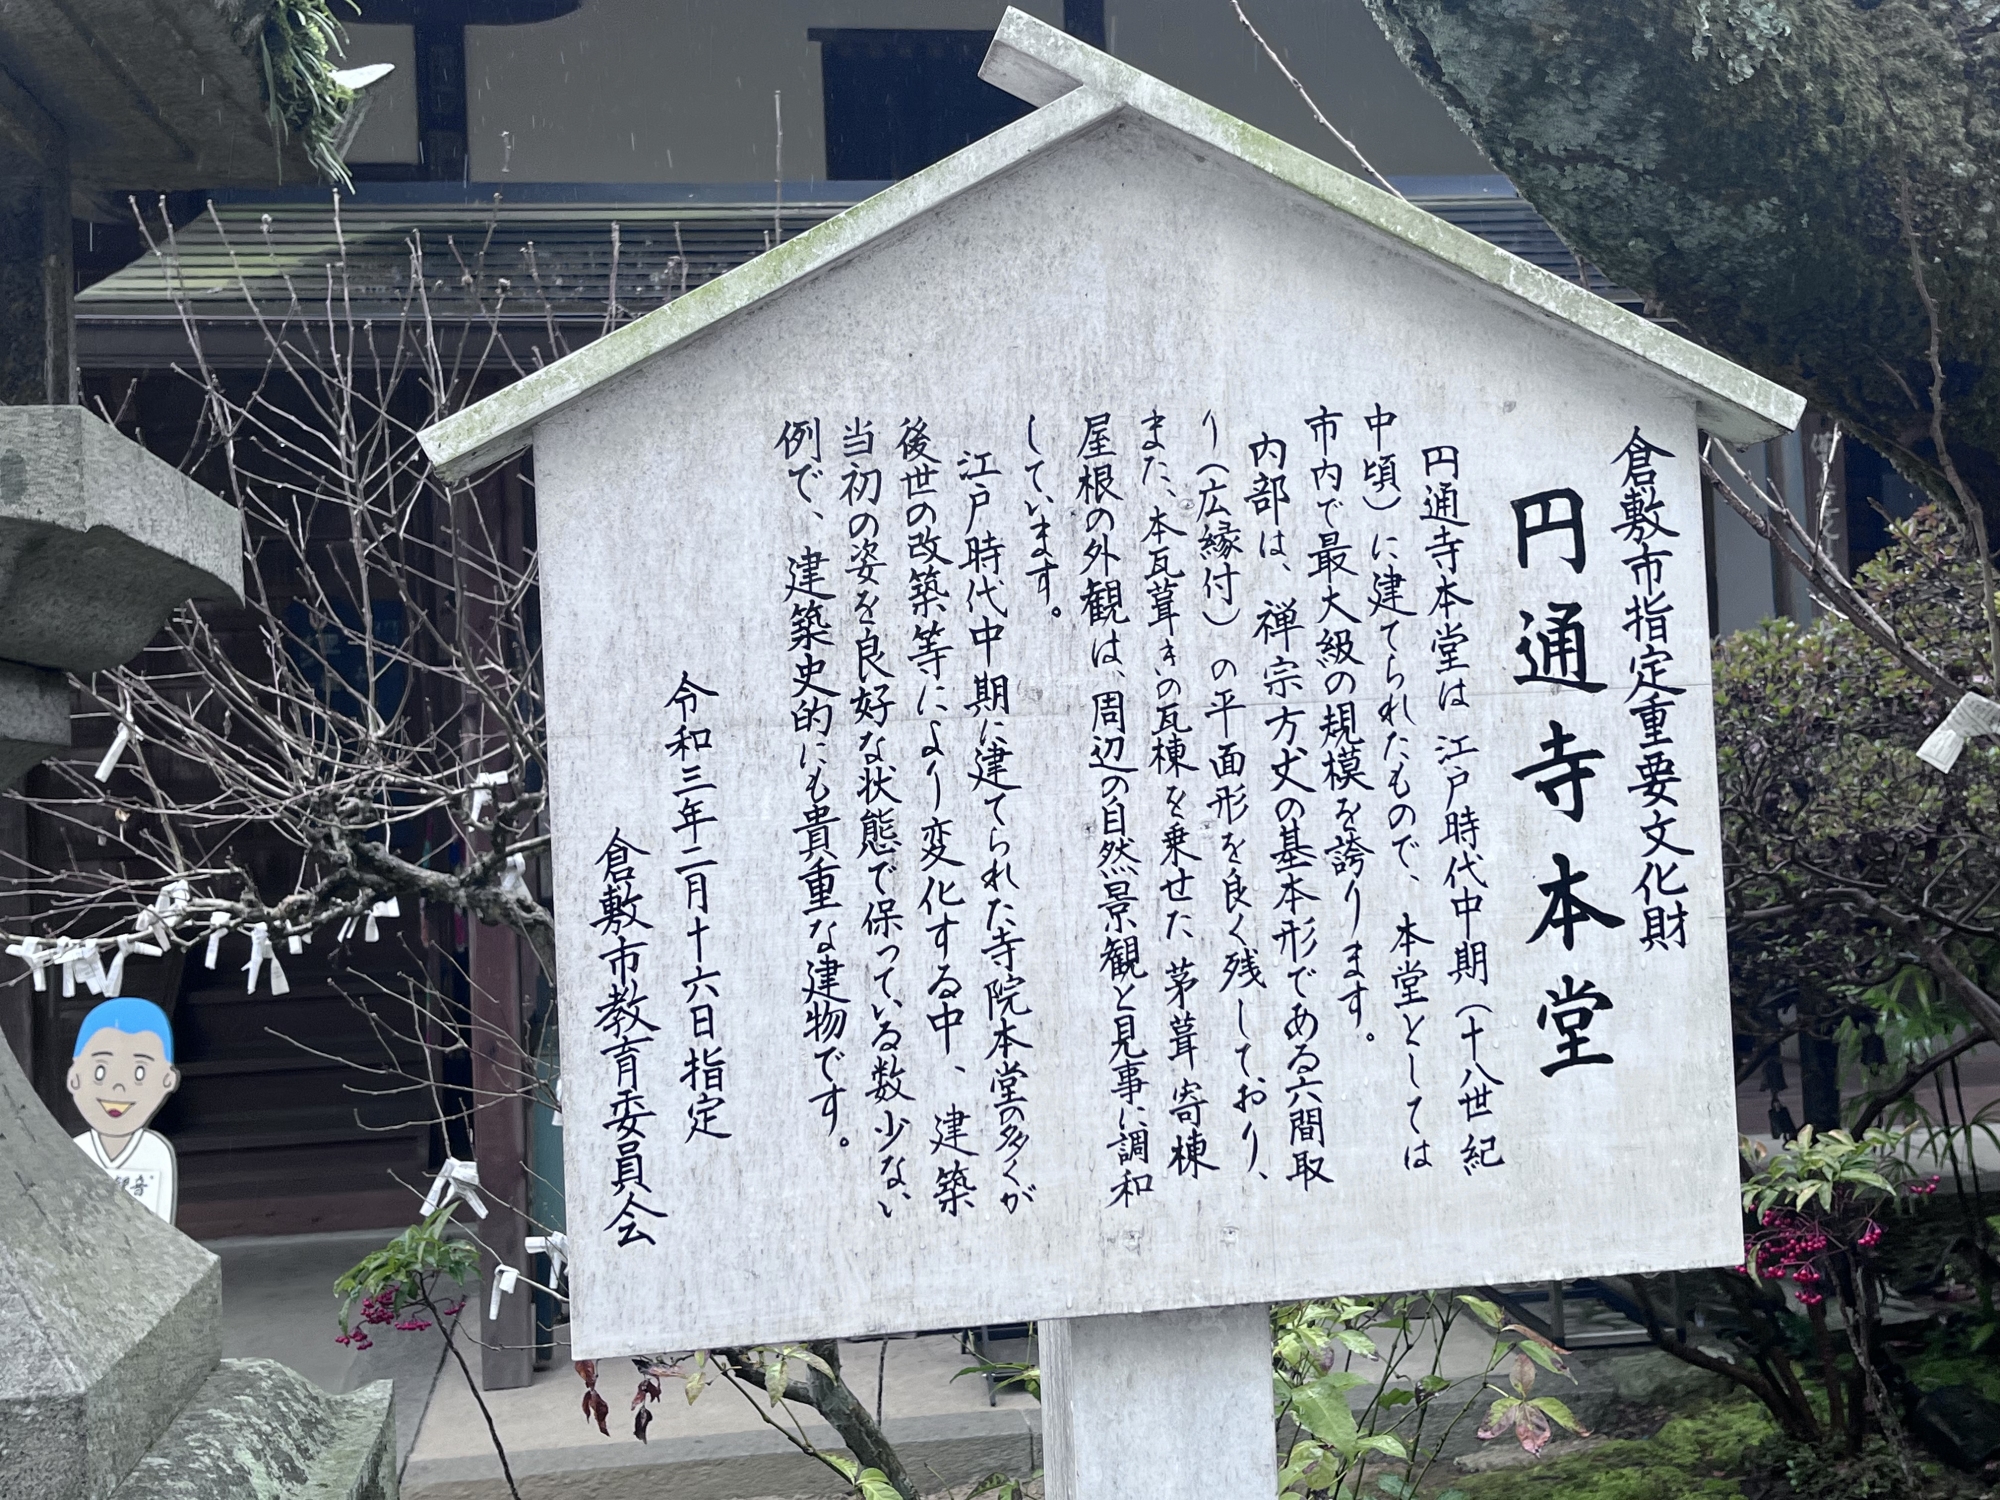 倉敷市指定重要文化財
円通寺本堂
円通寺本堂は江戸時代中期（十八世紀
中頃）に建てられたもので、本堂としては
市内で最大級の規模を誇ります。
内部は、禅宗方丈の基本形である六間取
り（広縁付）の平面形を良く残しており、
また、本瓦葺きの瓦棟を乗せた茅葺寄棟
屋根の外観は、周辺の自然景観と見事に調和
しています。
江戸時代中期に建てられた寺院本堂の多くが
後世の改築等により変化する中、建築
当初の姿を良好な状態で保っている数少ない
例で、建築史的にも貴重な建物です。
令和三年二月十六日指定
倉敷市教育委員会